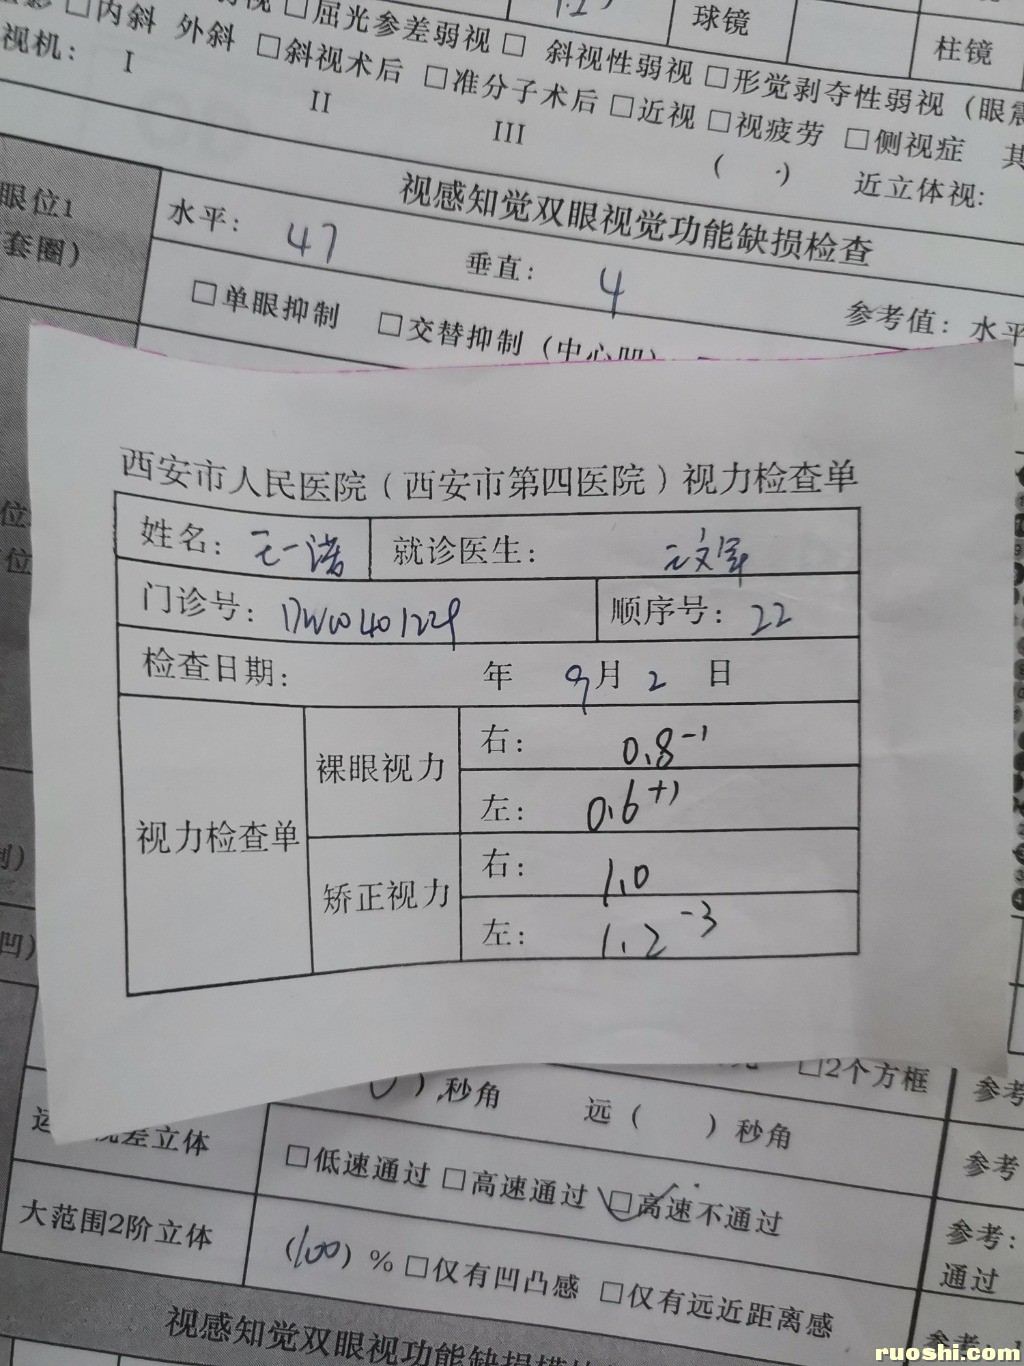 □内斜 外斜 □屈光参差弱视 □ 斜视性弱视 □形觉剥夺性弱视（眼震
球镜
柱镜
视机： I □斜视术后 □准分子术后 □近视 □视疲劳 □侧视症 其
II III ( ·) 近立体视：
视感知觉双眼视觉功能缺损检查
眼位1
套圈）
水平： 47 垂直： 4 参考值：水平
□单眼抑制 □交替抑制（中心凹）
西安市人民医院（西安市第四医院）视力检查单
姓名： 王一诺 就诊医生：
门诊号： 顺序号： 22
检查日期： 年 9月 2 日
视力检查单
裸眼视力 右： 0.8⁻¹
左： 0.6⁺¹
矫正视力 右： 1.0
左： 1.2⁻³
□2个方框
）秒角 远（ ）秒角 参考
差立体 □低速通过 □高速通过 □高速不通过 参考
大范围2阶立体 (100) % □仅有凹凸感 □仅有远近距离感 参考：
通过
视感知觉双眼视功能缺损
参考：
ruoshi.com